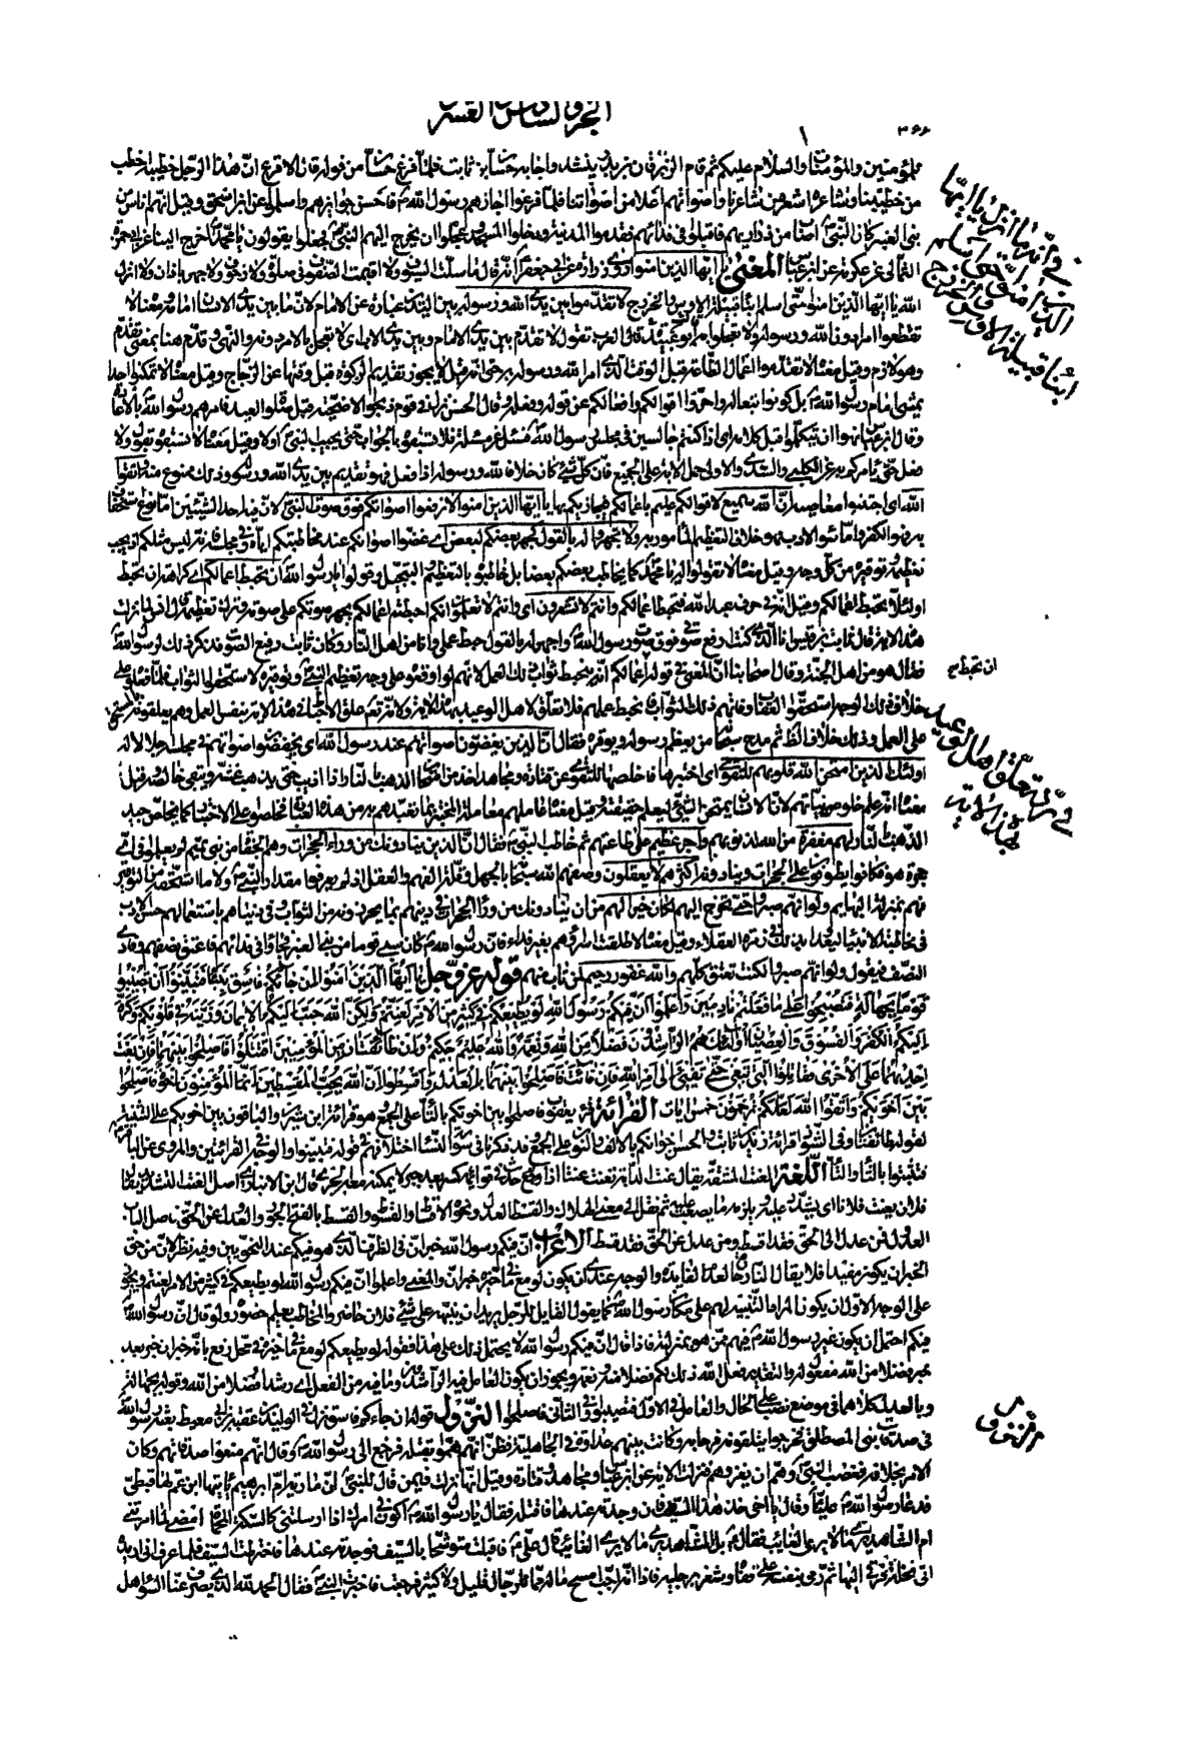 الجزء السادس والعشرون
۳۶۶
للمؤمنين والمؤمنات والسلام عليكم ثم قام الزبرقان بن بدر ينشد واجابه حسان بن ثابت فلما فرغ حسان من قوله قال الاقرع ان هذا الرجل خطيبه اخطب
من خطيبنا وشاعره اشعر من شاعرنا واصواتهم اعلا من اصواتنا فلما فرغوا اجازهم رسول الله ص فاحسن جوائزهم واسلموا عن ابن اسحق وقيل انهم اناس من
بنى العنبر كان النبى ص اصاب من ذراريهم فاقبلوا فى فدائهم فقدموا المدينة ودخلوا المسجد وعجلوا ان يخرج اليهم النبى ص فجعلوا يقولون يا محمد اخرج الينا عن ابى حمزة
الثمالى عن عكرمة عن ابن عباس المعنى يا ايها الذين امنوا روى زرارة عن ابى جعفر ع انه قال ما سلت السيوف ولا اقيمت الصفوف فى صلوة ولا زحوف ولا جهر باذان ولا انزل
الله يا ايها الذين امنوا حتى اسلم ابناء قبيلة الاوس والخزرج لا تقدموا بين يدى الله ورسوله بين اليدين عبارة عن الامام لان ما بين يدى الانسان امامه ومعناه لا
تقطعوا امرا دون الله ورسوله ولا تعجلوا به ابو عبيدة قال العرب تقول لا تقدم بين يدى الامام وبين يدى الاب اى لا تعجل بالامر دونه والنهى وقدم هنا بمعنى تقدم
وهو لازم وقيل معناه لا تقدموا اعمال الطاعة قبل الوقت الذى امر الله ورسوله به حتى انه قيل لا يجوز تقديم الزكوة قبل وقتها عن الزجاج وقيل معناه لا تمكنوا احدا
يمشى امام رسول الله ص بل كونوا تبعا له واخروا اقوالكم وافعالكم عن قوله وفعله وقال الحسن نزل فى قوم ذبحوا الاضحية قبل صلوة العيد فامرهم رسول الله بالاعادة
وقال ابن عباس نهوا ان يتكلموا قبل كلامه اى اذا كنتم جالسين فى مجلس رسول الله ص فسئل عن مسئلة فلا تسبقوه بالجواب حتى يجيب النبى ص اولا وقيل معناه لا تسبقوه بقول ولا
فعل حتى يامركم به عن الكلبى والسدى والاولى حمل الاية على الجميع فان كل شىء كان خلافا لله ورسوله اذا فعل فهو تقديم بين يدى الله ورسوله وذلك ممنوع منه واتقوا
الله اى اجتنبوا معاصيه ان الله سميع لاقوالكم عليم باعمالكم فيجازيكم بها يا ايها الذين امنوا لا ترفعوا اصواتكم فوق صوت النبى لان فيه احد الشيئين اما نوع استخفاف
به فهو الكفر واما سوء الادب فهو خلاف التعظيم المامور به ولا تجهروا له بالقول كجهر بعضكم لبعض اى غضوا اصواتكم عند مخاطبتكم اياه وفى مجلسه فانه ليس مثلكم اذ يجب
تعظيمه وتوقيره من كل وجه وقيل معناه لا تقولوا له يا محمد كما يخاطب بعضكم بعضا بل خاطبوه بالتعظيم والتبجيل وقولوا يا رسول الله ان تحبط اعمالكم اى كراهة ان تحبط
او لئلا تحبط اعمالكم وقيل انه فى حرف عبد الله فتحبط اعمالكم وانتم لا تشعرون اى وانتم لا تعلمون انكم احبطتم اعمالكم بجهر صوتكم على صوته وترك تعظيمه قال انس لما نزلت
هذه الاية قال ثابت بن قيس انا الذى كنت ارفع صوتى فوق صوت رسول الله ص واجهر له بالقول حبط عملى وانا من اهل النار وكان ثابت رفيع الصوت فذكر ذلك لرسول الله ص
فقال هو من اهل الجنة وقال اصحابنا ان المعنى فى قوله ان تحبط اعمالكم انه ينحبط ثواب ذلك العمل لانهم لو اوقعوه على وجه تعظيم النبى ص وتوقيره لاستحقوا الثواب فلما فعلوه على
خلاف ذلك الوجه استحقوا العقاب وفاتهم ذلك الثواب فانحبط عملهم فلا تعلق لاهل الوعيد بهذه الاية ولانه تعالى علق الاحباط فى هذه الاية بنفس العمل وهم يعلقونه بالمستحق
على العمل وذلك خلاف الظاهر ثم مدح سبحانه من يعظم رسوله ويوقره فقال ان الذين يغضون اصواتهم عند رسول الله اى يخفضون اصواتهم فى مجلسه اجلالا له
اولئك الذين امتحن الله قلوبهم للتقوى اى اختبرها فاخلصها للتقوى عن قتادة ومجاهد اخذ من امتحان الذهب بالنار اذا اذيب حتى يذهب غشه ويبقى خالصه وقيل
معناه انه علم خلوص نياتهم لان الانسان يمتحن الشىء ليعلم حقيقته وقيل معناه عاملهم معاملة المختبر بما تعبدهم به من هذه العبادة فخلصوا على الاختبار كما يخلص جيد
الذهب بالنار لهم مغفرة من الله لذنوبهم واجر عظيم على طاعتهم ثم خاطب النبى ص فقال ان الذين ينادونك من وراء الحجرات وهم الجفاة من بنى تميم لم يعلموا فى اى
حجرة هو فكانوا يطوفون على الحجرات وينادونه اكثرهم لا يعقلون وصفهم الله سبحانه بالجهل وقلة الفهم والعقل اذ لم يعرفوا مقدار النبى ص ولا ما استحقه من التوقير
فهم بمنزلة البهايم ولو انهم صبروا حتى تخرج اليهم لكان خيرا لهم من ان ينادونك من وراء الحجرات فى دينهم بما يحرزونه من الثواب وفى دنياهم باستعمالهم حسن الادب
فى مخاطبة الانبياء ليعدوا بذلك فى زمرة العقلاء وقيل معناه لاطلقت اسراءهم بغير فداء فان رسول الله ص كان سبى قوما من بنى العنبر فجاؤا فى فدائهم فاعتق نصفهم وفادى
النصف فيقول ولو انهم صبروا لكنت تعتق كلهم والله غفور رحيم لمن تاب منهم قوله عز وجل يَا أَيُّهَا الَّذِينَ آمَنُوا إِنْ جَاءَكُمْ فَاسِقٌ بِنَبَإٍ فَتَبَيَّنُوا أَنْ تُصِيبُوا
قَوْمًا بِجَهَالَةٍ فَتُصْبِحُوا عَلَى مَا فَعَلْتُمْ نَادِمِينَ وَاعْلَمُوا أَنَّ فِيكُمْ رَسُولَ اللَّهِ لَوْ يُطِيعُكُمْ فِي كَثِيرٍ مِنَ الْأَمْرِ لَعَنِتُّمْ وَلَكِنَّ اللَّهَ حَبَّبَ إِلَيْكُمُ الْإِيمَانَ وَزَيَّنَهُ فِي قُلُوبِكُمْ وَكَرَّهَ
إِلَيْكُمُ الْكُفْرَ وَالْفُسُوقَ وَالْعِصْيَانَ أُولَئِكَ هُمُ الرَّاشِدُونَ فَضْلًا مِنَ اللَّهِ وَنِعْمَةً وَاللَّهُ عَلِيمٌ حَكِيمٌ وَإِنْ طَائِفَتَانِ مِنَ الْمُؤْمِنِينَ اقْتَتَلُوا فَأَصْلِحُوا بَيْنَهُمَا فَإِنْ بَغَتْ
إِحْدَيهُمَا عَلَى الْأُخْرَى فَقَاتِلُوا الَّتِي تَبْغِي حَتَّى تَفِيءَ إِلَى أَمْرِ اللَّهِ فَإِنْ فَاءَتْ فَأَصْلِحُوا بَيْنَهُمَا بِالْعَدْلِ وَأَقْسِطُوا إِنَّ اللَّهَ يُحِبُّ الْمُقْسِطِينَ إِنَّمَا الْمُؤْمِنُونَ إِخْوَةٌ فَأَصْلِحُوا
بَيْنَ أَخَوَيْكُمْ وَاتَّقُوا اللَّهَ لَعَلَّكُمْ تُرْحَمُونَ خمس ايات القرائة قرء يعقوب فاصلحوا بين اخوتكم بالتاء على الجمع وهو قرائة ابن سيرين والباقون بين اخويكم على التثنية
لقوله طائفتان وفى الشواذ قرائة زيد بن ثابت والحسن اخوانكم بالالف والنون على الجمع قد ذكرنا فى سورة النساء اختلافهم فى قوله فتبينوا والوجه فى القرائتين والمروى عن الباقر ع
فتثبتوا بالثاء والتاء اللغة العنت المشقة يقال عنت الدابة تعنت عنتا اذا وقع حدث فى قوائمه كسر بعد جبر لا يمكنه معه الجرى قال ابن الانبارى اصل العنت التشديد يقال
فلان يعنت فلانا اى يشدد عليه ويلزمه ما يصعب عليه ثم نقل الى معنى الهلاك والقسط العدل ونحوه الاقساط والقسوط والقسط بالفتح الجور والعدول عن الحق فاصل الباب
العدول فمن عدل الى الحق فقد اقسط ومن عدل عن الحق فقد قسط الاعراب ان فيكم رسول الله خبر ان فى الظرف الذى هو فيكم عند النحويين وفيه نظر لان من حق
الخبر ان يكون مفيدا فلا يقال النار حارة لعدم الفايدة والوجه عندى ان يكون لو مع ما فى حيزه خبر ان والمعنى واعلموا ان فيكم رسول الله لو يطيعكم فى كثير من الامر لعنتم ويجوز
على الوجه الاول ان يكون المراد التنبيه لهم على مكان رسول الله ص كما يقول القايل للرجل يريد ان ينبهه على شىء فلان حاضر والمخاطب يعلم حضوره ولو قال ان رسول الله
فيكم احتمل ان يكون غير رسول الله ص فيهم ممن هو بمنزلته فاذا قال ان فيكم رسول الله لا يحتمل ذلك على هذا فقوله لو يطيعكم لو مع ما فى حيزه فى محل رفع بانه خبر ان خبر بعد
خبر فضلا من الله مفعول له والتقدير فعل الله ذلك لكم فضلا منه ونعمة ويجوز ان يكون العامل فيه الراشدون وما فيه من الفعل اى رشدوا فضلا من الله وقوله بجهالة
وبالعدل كلاهما فى موضع نصب على الحال والعامل فى الاول فتصيبوا وفى الثانى فاصلحوا النزول قوله ان جاءكم فاسق نزل فى الوليد بن عقبة بن ابى معيط بعثه رسول الله
فى صدقات بنى المصطلق فخرجوا يتلقونه فرحا به وكانت بينهم عداوة فى الجاهلية فظن انهم هموا بقتله فرجع الى رسول الله ص وقال انهم منعوا صدقاتهم وكان
الامر بخلافه فغضب النبى ص وهم ان يغزوهم فنزلت الاية عن ابن عباس ومجاهد وقتادة وقيل انها نزلت فيمن قال للنبى ص ان مارية ام ابراهيم ياتيها ابن عم لها قبطى
فدعا رسول الله ص عليا ع وقال يا اخى خذ هذا السيف فان وجدته عندها فاقتله فقال يا رسول الله ص اكون فى امرك اذا ارسلتنى كالسكة المحماة امضى لما امرتنى
ام الشاهد يرى ما لا يرى الغائب فقال ص بل الشاهد يرى ما لا يرى الغائب قال على ع فاقبلت متوشحا بالسيف فوجدته عندها فاخترطت السيف فلما عرف انى اريده
اتى نخلة فرقى اليها ثم رمى بنفسه على قفاه وشغر برجليه فاذا انه اجب امسح ما له مما للرجال قليل ولا كثير فرجعت فاخبرت النبى ص فقال الحمد لله الذى يصرف عنا السوء اهل
ان تحبط
فى ان تعلق اهل الوعيد
بهذه الاية